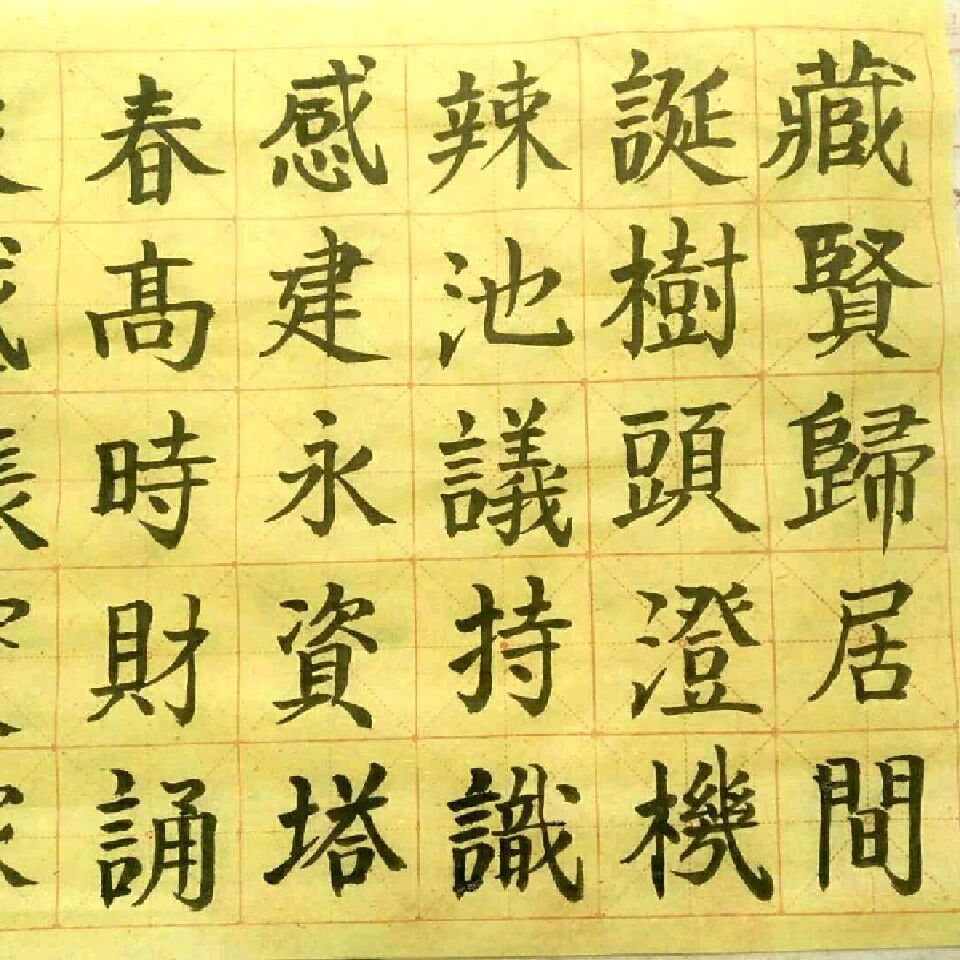 藏賢歸居間
誕樹頭澄機
辣池議持識
感建永資塔
春髙時財誦